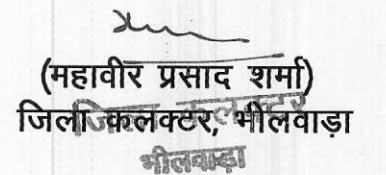 (महावीर प्रसाद शर्मा)
जिला कलक्टर, भीलवाड़ा
जिला कलक्टर
भीलवाड़ा